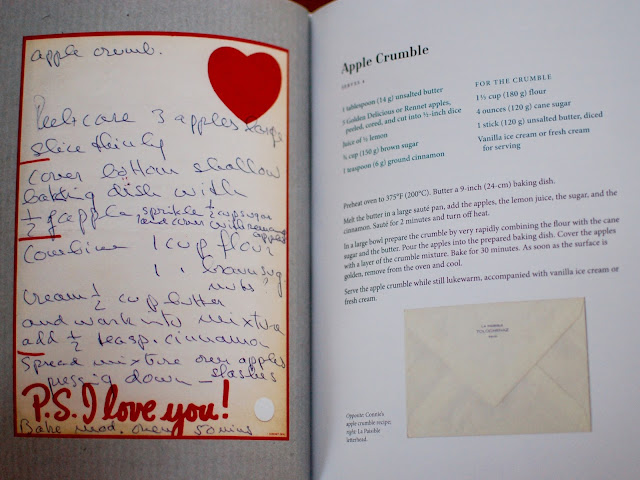 apple crumb.
Peel & core 3 apples large
slice thinly
cover bottom shallow
baking dish with
½ of apple sprinkle ½ cup sugar
and cover with remaining
apples
Combine 1 cup flour
1 " brown sug
nuts
cream ½ cup butter
and work into mixture
add ½ teasp. cinnamon
Spread mixture over apples
pressing down – slashes
P.S. I love you!
Bake mod. oven 50 mins
Apple Crumble
SERVES 4
1 tablespoon (14 g) unsalted butter
5 Golden Delicious or Rennet apples,
peeled, cored, and cut into ½-inch dice
Juice of ½ lemon
¾ cup (150 g) brown sugar
1 teaspoon (6 g) ground cinnamon
FOR THE CRUMBLE
1½ cup (180 g) flour
4 ounces (120 g) cane sugar
1 stick (120 g) unsalted butter, diced
Vanilla ice cream or fresh cream
for serving
Preheat oven to 375°F (200°C). Butter a 9-inch (24-cm) baking dish.
Melt the butter in a large sauté pan, add the apples, the lemon juice, the sugar, and the
cinnamon. Sauté for 2 minutes and turn off heat.
In a large bowl prepare the crumble by very rapidly combining the flour with the cane
sugar and the butter. Pour the apples into the prepared baking dish. Cover the apples
with a layer of the crumble mixture. Bake for 30 minutes. As soon as the surface is
golden, remove from the oven and cool.
Serve the apple crumble while still lukewarm, accompanied with vanilla ice cream or
fresh cream.
Opposite: Connie's
apple crumble recipe;
right: La Pausible
letterhead.